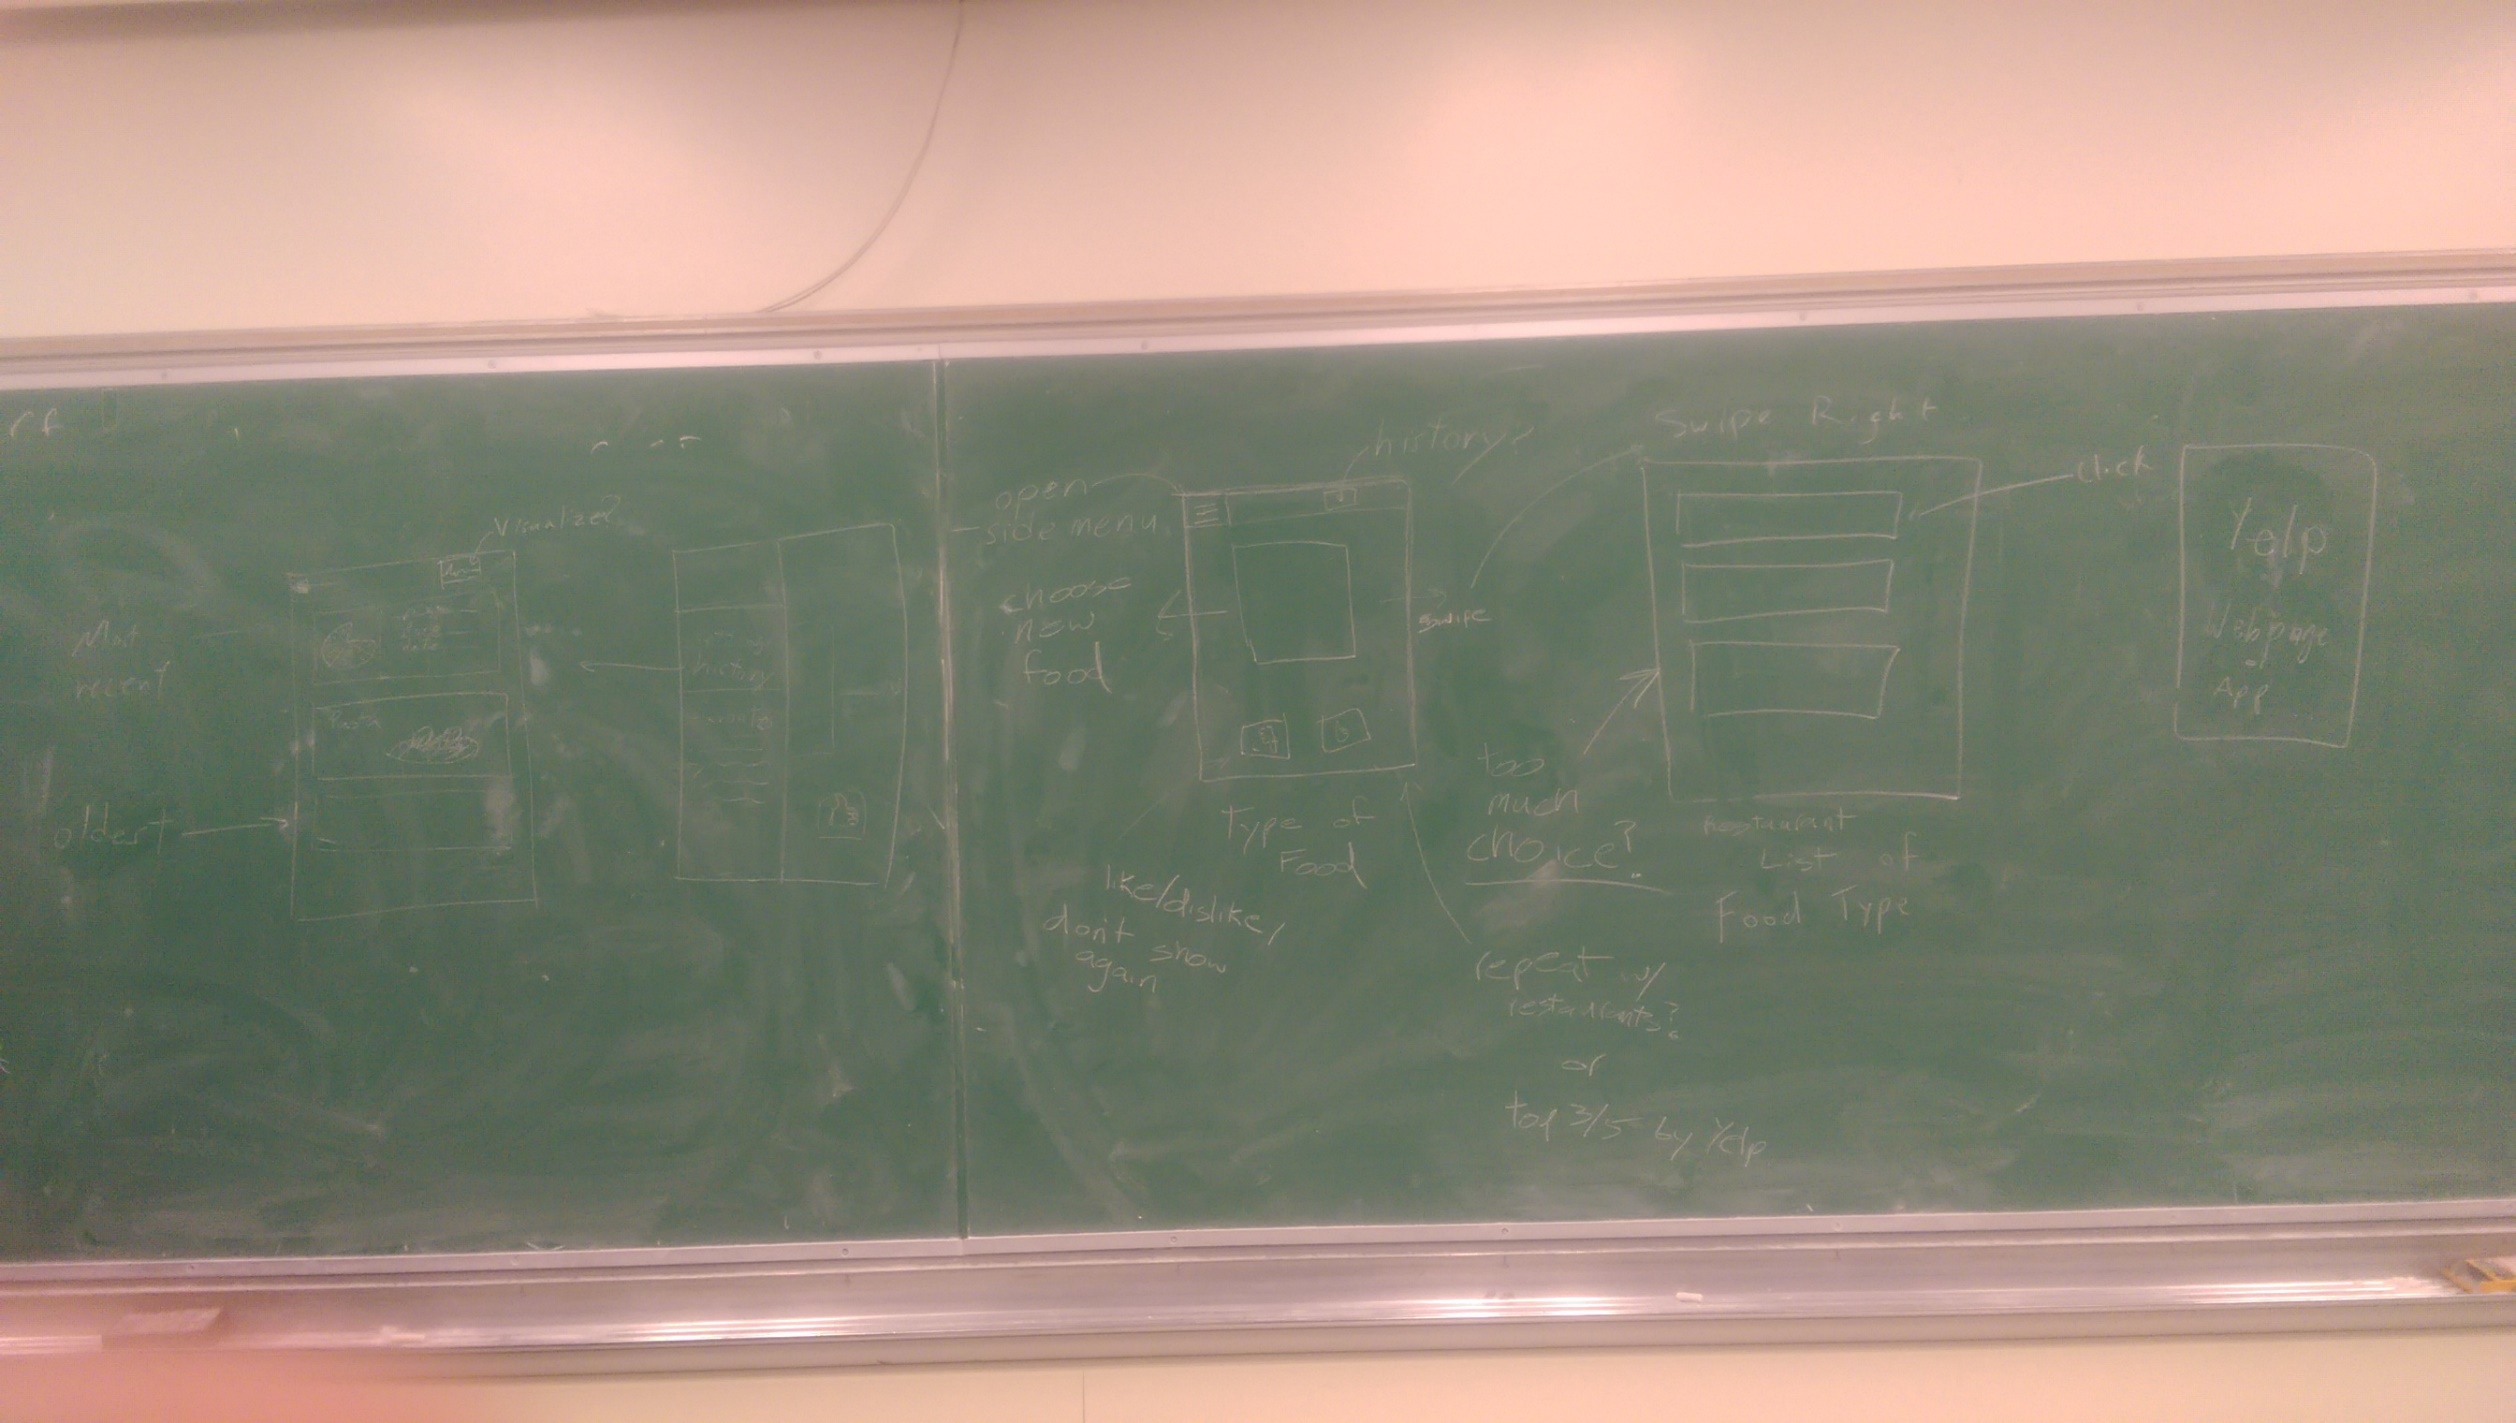 Visualize?
Most
recent
Pasta
oldest
history
open
side menu
history?
choose
new
food
swipe
Type of
Food
like/dislike,
don't show
again
Swipe Right
click
too
much
choice?
Restaurant
List of
Food Type
repeat w/
restaurants?
or
top 3/5 by Yelp
Yelp
Webpage
or
App